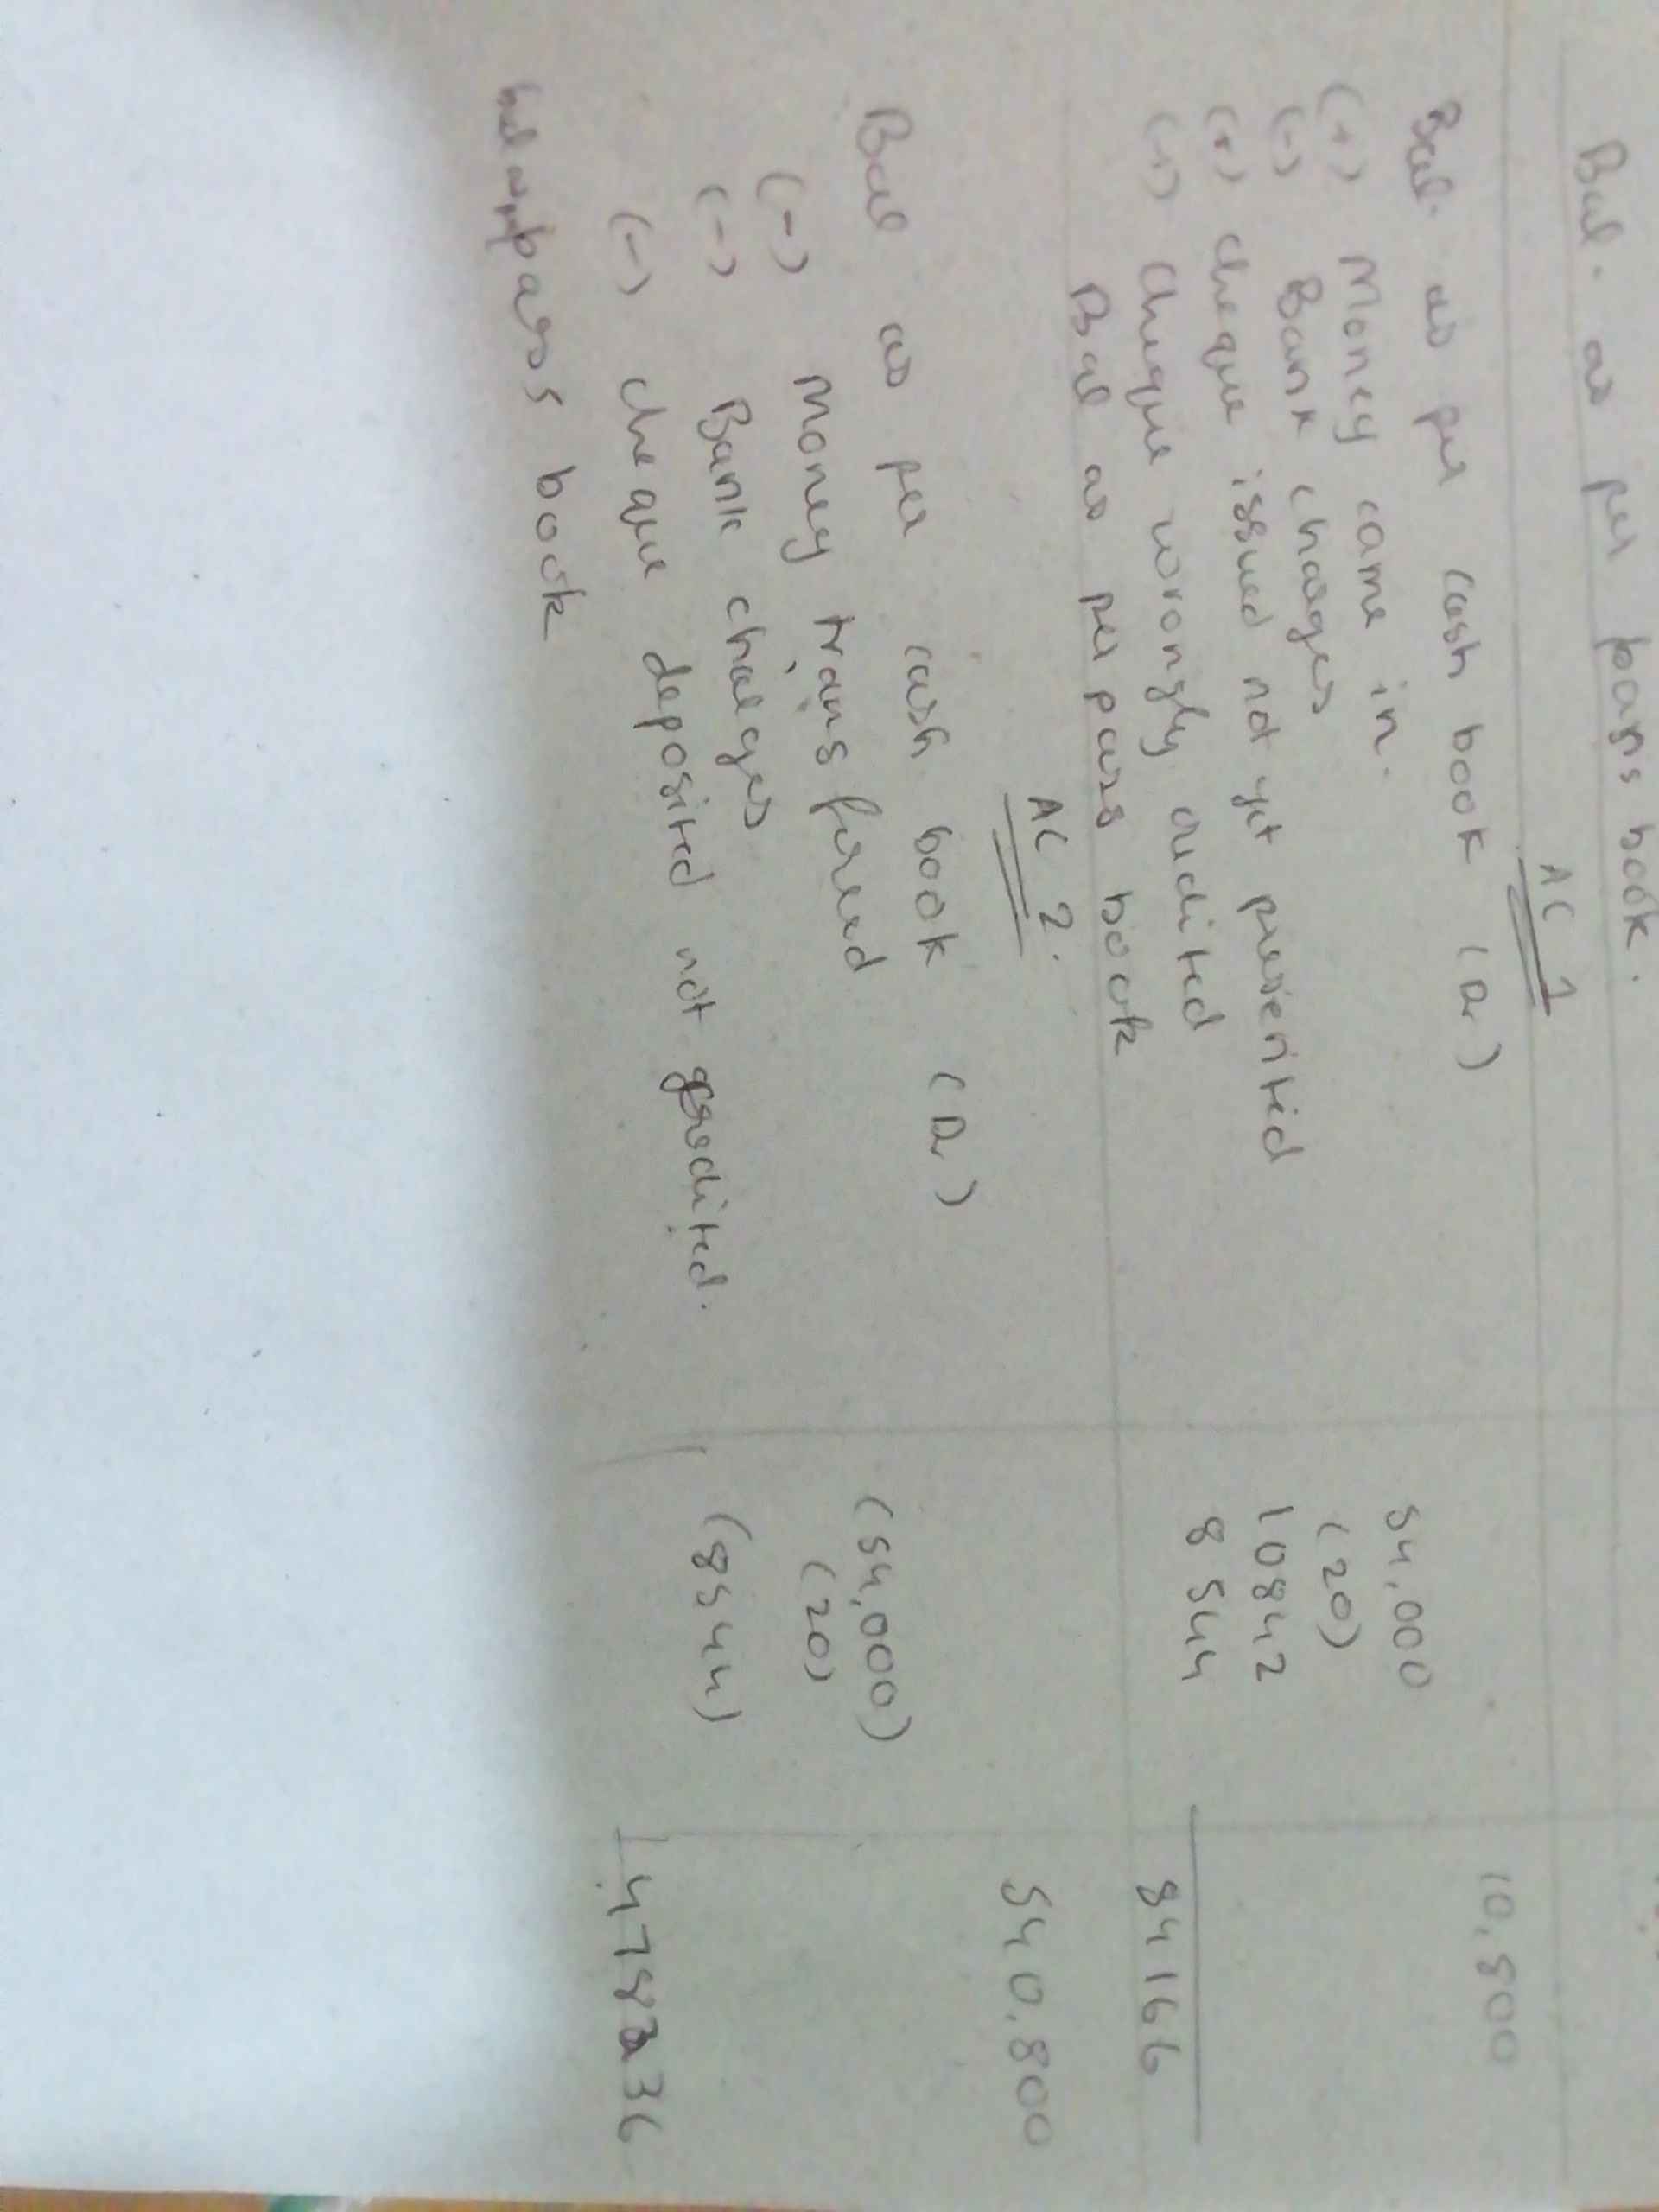 Bal. as per pass book.
AC 1
Bal. as per cash book (Dr) 10,800
(+) Money came in. 54,000
(-) Bank charges (20)
(+) cheque issued not yet presented 10842
(+) Cheque wrongly credited 8544
Bal as per pass book 84166
AC 2.
Bal as per cash book (Dr) 540,800
(-) Money transfered (54,000)
(-) Bank charges (20)
(-) cheque deposited not credited. (8544)
bal as per pass book 478236